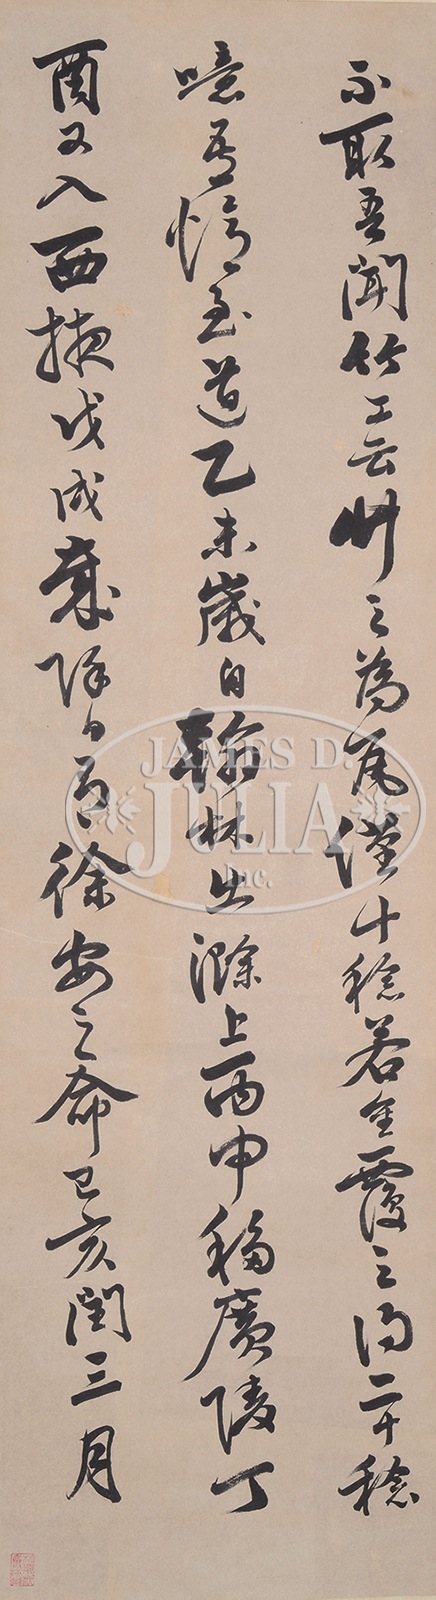 不取吾聞竹工云竹之為瓦僅十稔若重覆之得二十稔
噫吾至道乙未歲自翰林出滁上丙申移廣陵丁
酉又入西掖戊戌歲除日有徐安之命己亥閏三月
JAMES D.
JULIA
Inc.